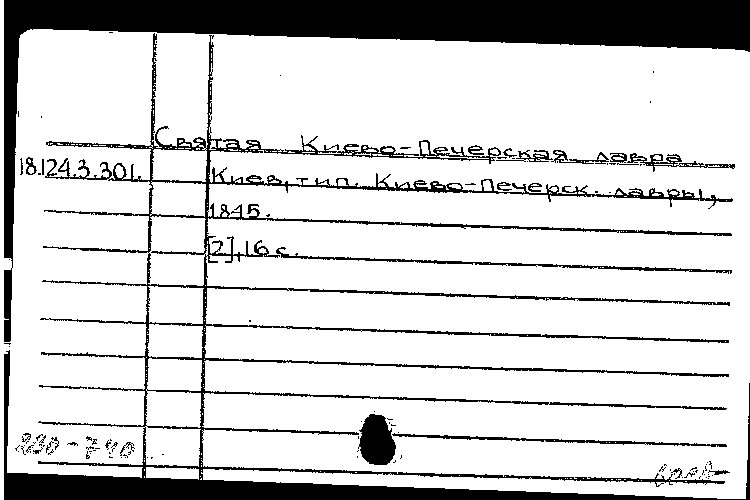 Святая Киево-Печерская лавра.
18.124.3.301.
Киев, тип. Киево-Печерск. лавры,
1845.
[2], 16 с.
230-740